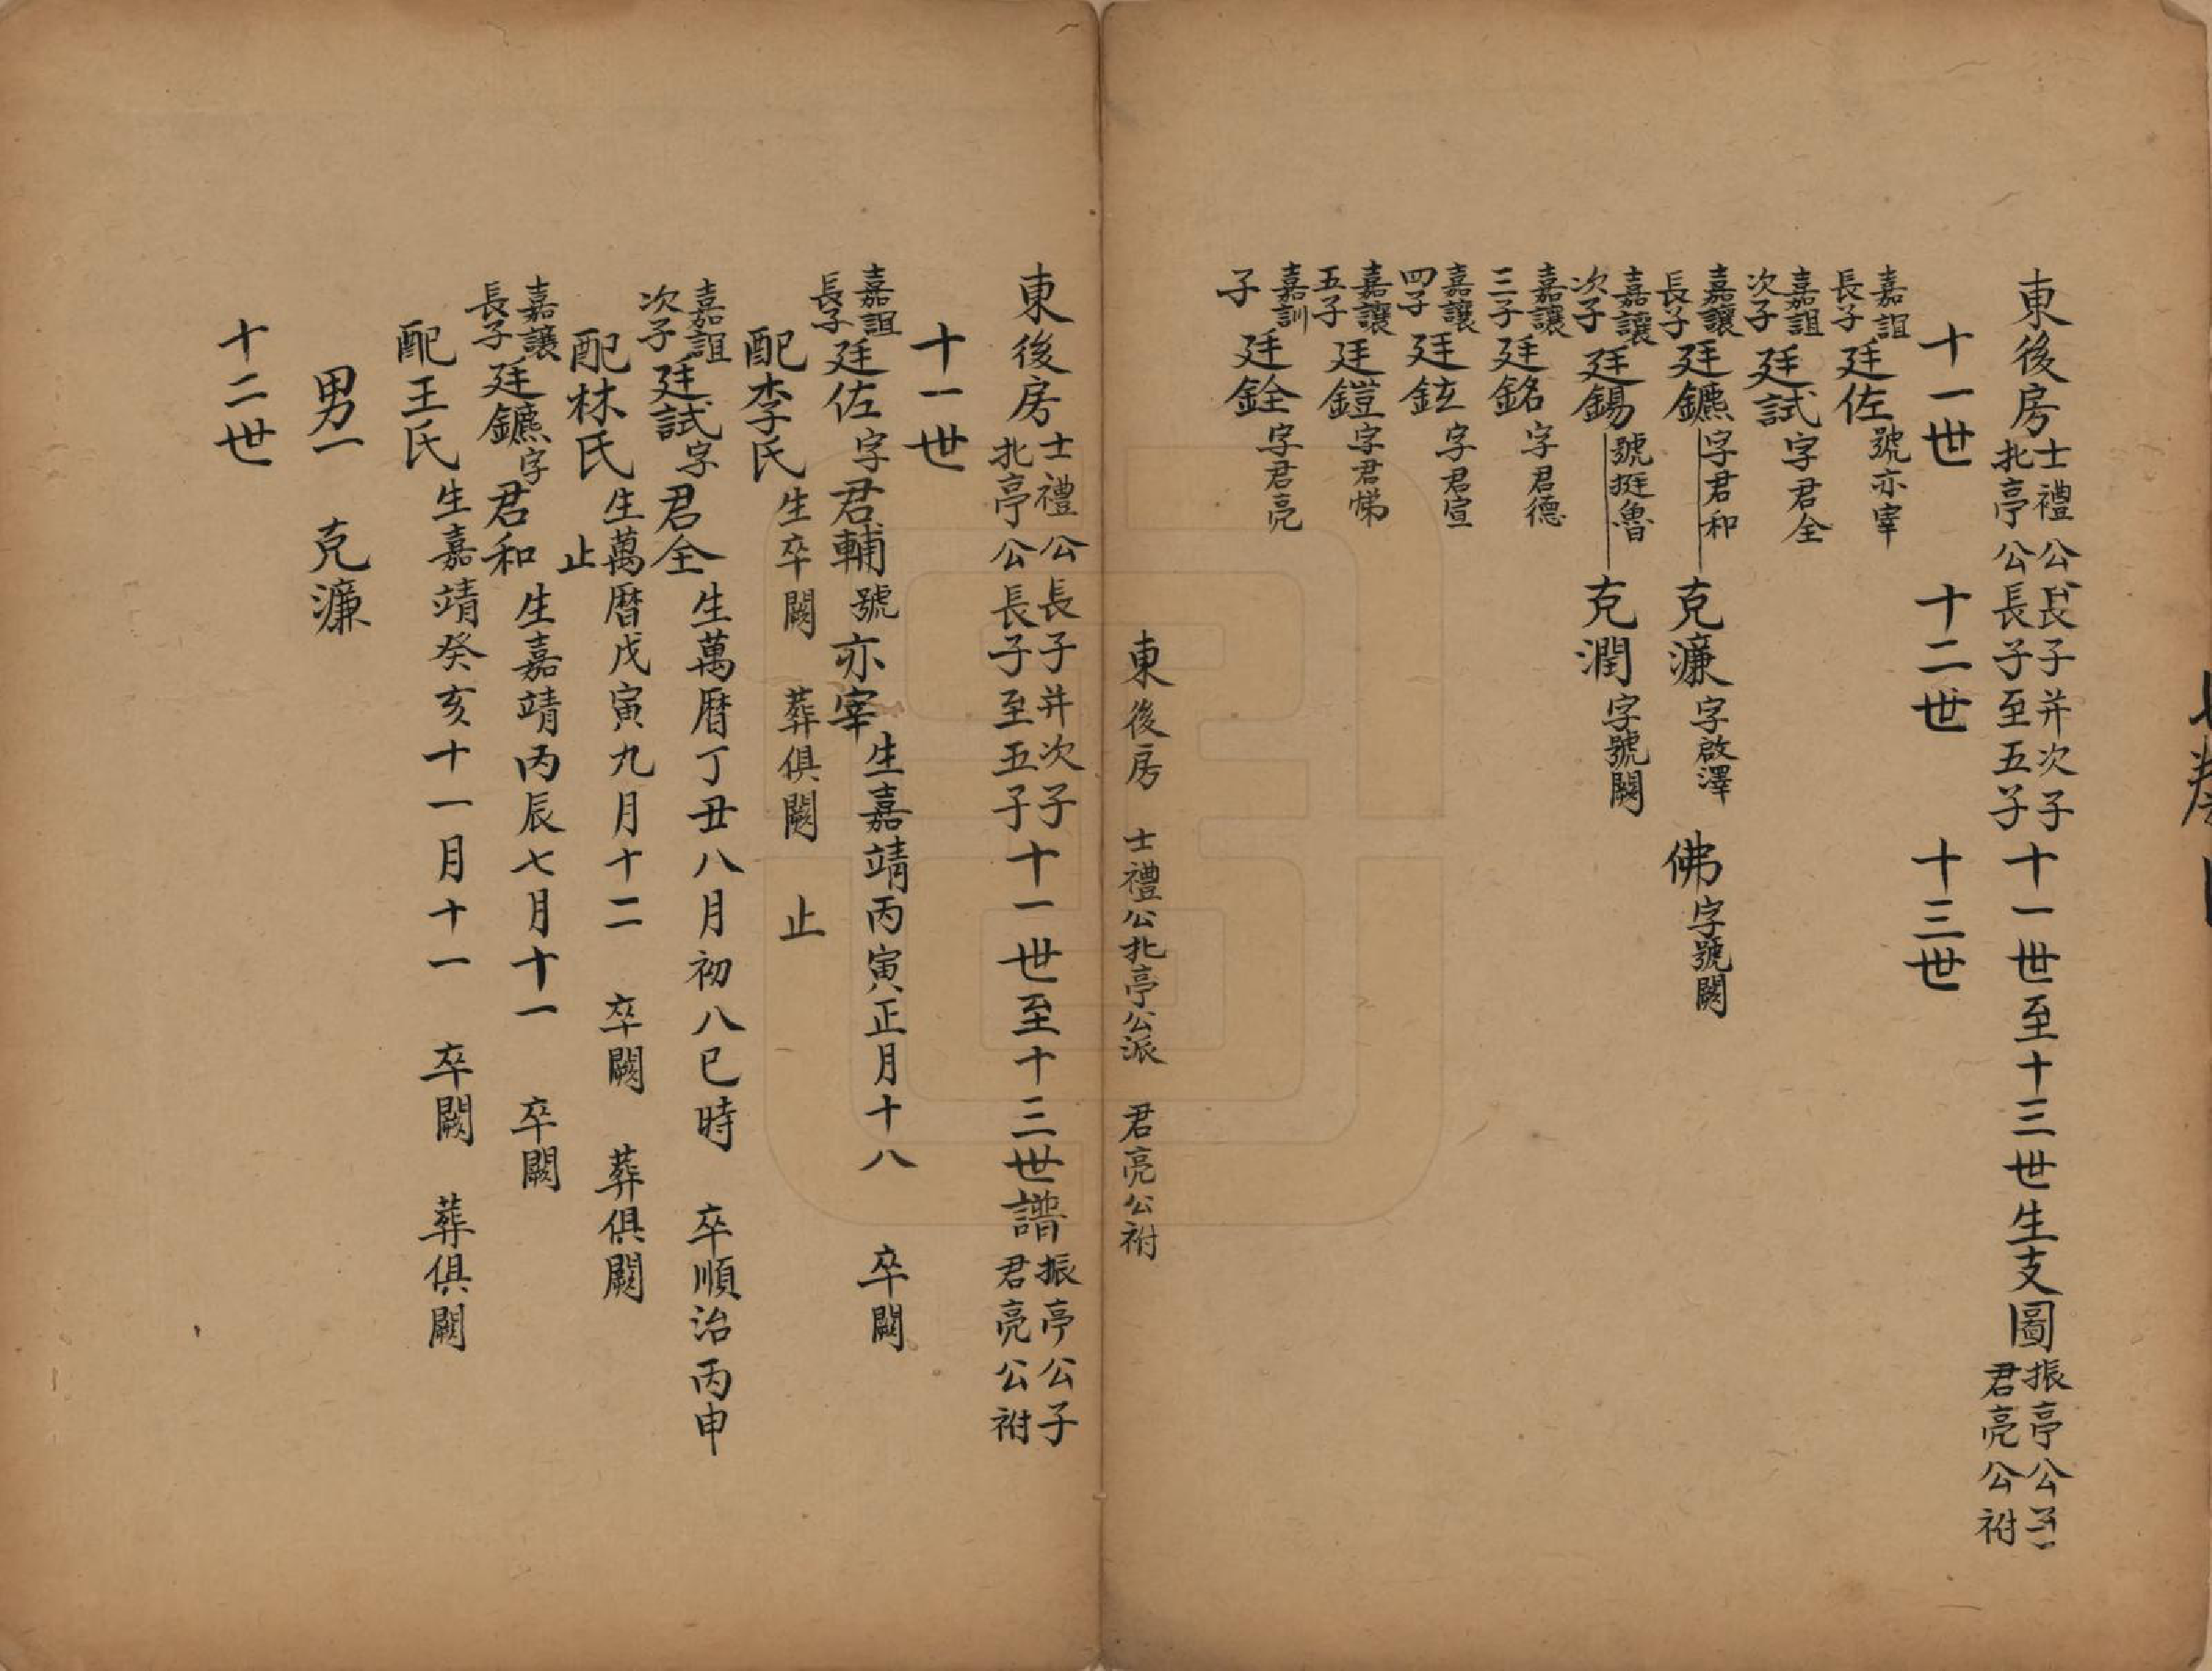 東後房 士禮公長子并次子 北亭公長子至五子 十一世至十三世生支圖 振亭公子 君亮公祔
十一世 十二世 十三世
嘉詛長子 廷佐 號亦宰
嘉詛次子 廷試 字君全
嘉讓長子 廷鑣 字君和 克濂 字啟澤 佛 字號闕
嘉讓次子 廷錫 號挺魯 克潤 字號闕
嘉讓三子 廷銘 字君德
嘉讓四子 廷鉉 字君宣
嘉讓五子 廷鎧 字君悌
嘉訓子 廷銓 字君亮
東後房 士禮公北亭公派 君亮公祔
東後房 士禮公長子并次子 北亭公長子至五子 十一世至十三世譜 振亭公子 君亮公祔
十一世
嘉詛長子 廷佐 字君輔 號亦宰 生嘉靖丙寅正月十八 卒闕
配李氏 生卒闕 葬俱闕 止
嘉詛次子 廷試 字君全 生萬曆丁丑八月初八巳時 卒順治丙申
配林氏 生萬曆戊寅九月十二 卒闕 葬俱闕 止
嘉讓長子 廷鑣 字君和 生嘉靖丙辰七月十一 卒闕
配王氏 生嘉靖癸亥十一月十一 卒闕 葬俱闕
男一 克濂
十二世